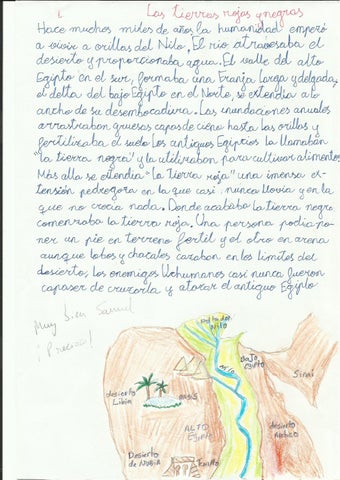 1
Las tierras rojas y negras
Hace muchos miles de años la humanidad empezó
a vivir a orillas del Nilo, El río atravesaba el
desierto y proporcionaba agua. El valle del alto
Egipto en el sur, formaba una Franja larga y delgada,
el delta del bajo Egipto en el Norte, se extendía a lo
ancho de su desembocadura. Las inundaciones anuales
arrastraban gruesas capas de cieno hasta las orillas y
fertilizaba el suelo. Los antiguos Egipcios la llamaban
"la tierra negra" y la utilizaban para cultivar alimentos.
Más alla se extendía "la tierra roja" una imensa ex-
tensión pedregosa en la que casi nunca llovía y en la
que no crecía nada. Donde acababa la tierra negra
comenzaba la tierra roja. Una persona podía po-
ner un pie en terreno fertil y el otro en arena
aunque lobos y chacales cazaban en los limites del
desierto, los enemigos humanos casi nunca fueron
capaser de cruzarla y atacar el antiguo Egipto
muy bien Samuel
¡Precioso!
delta del
Nilo
Bajo
Egipto
Sinaí
desierto
Libia
oasis
Nilo
ALTO
Egipto
desierto
Arabico
Desierto
de Nubia
Templo